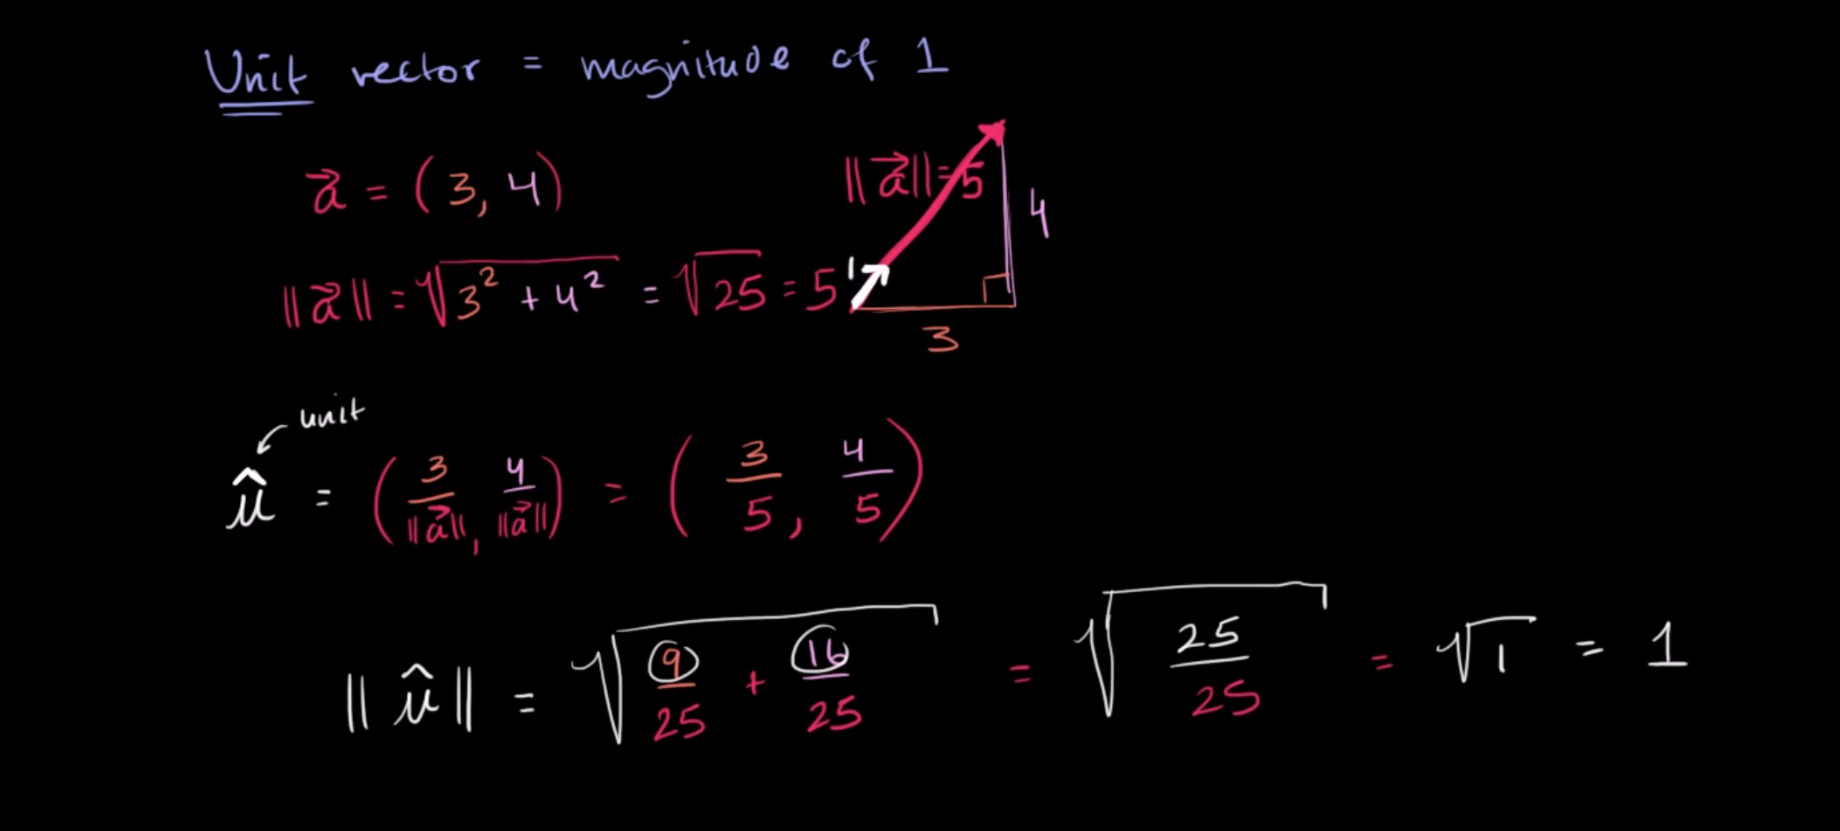 Unit vector = magnitude of 1
a⃗ = (3, 4)
||a⃗|| = 5
4
||a⃗|| = √(3² + 4²) = √25 = 5
1
3
unit
û = (3/||a⃗||, 4/||a⃗||) = (3/5, 4/5)
||û|| = √(9/25 + 16/25) = √(25/25) = √1 = 1